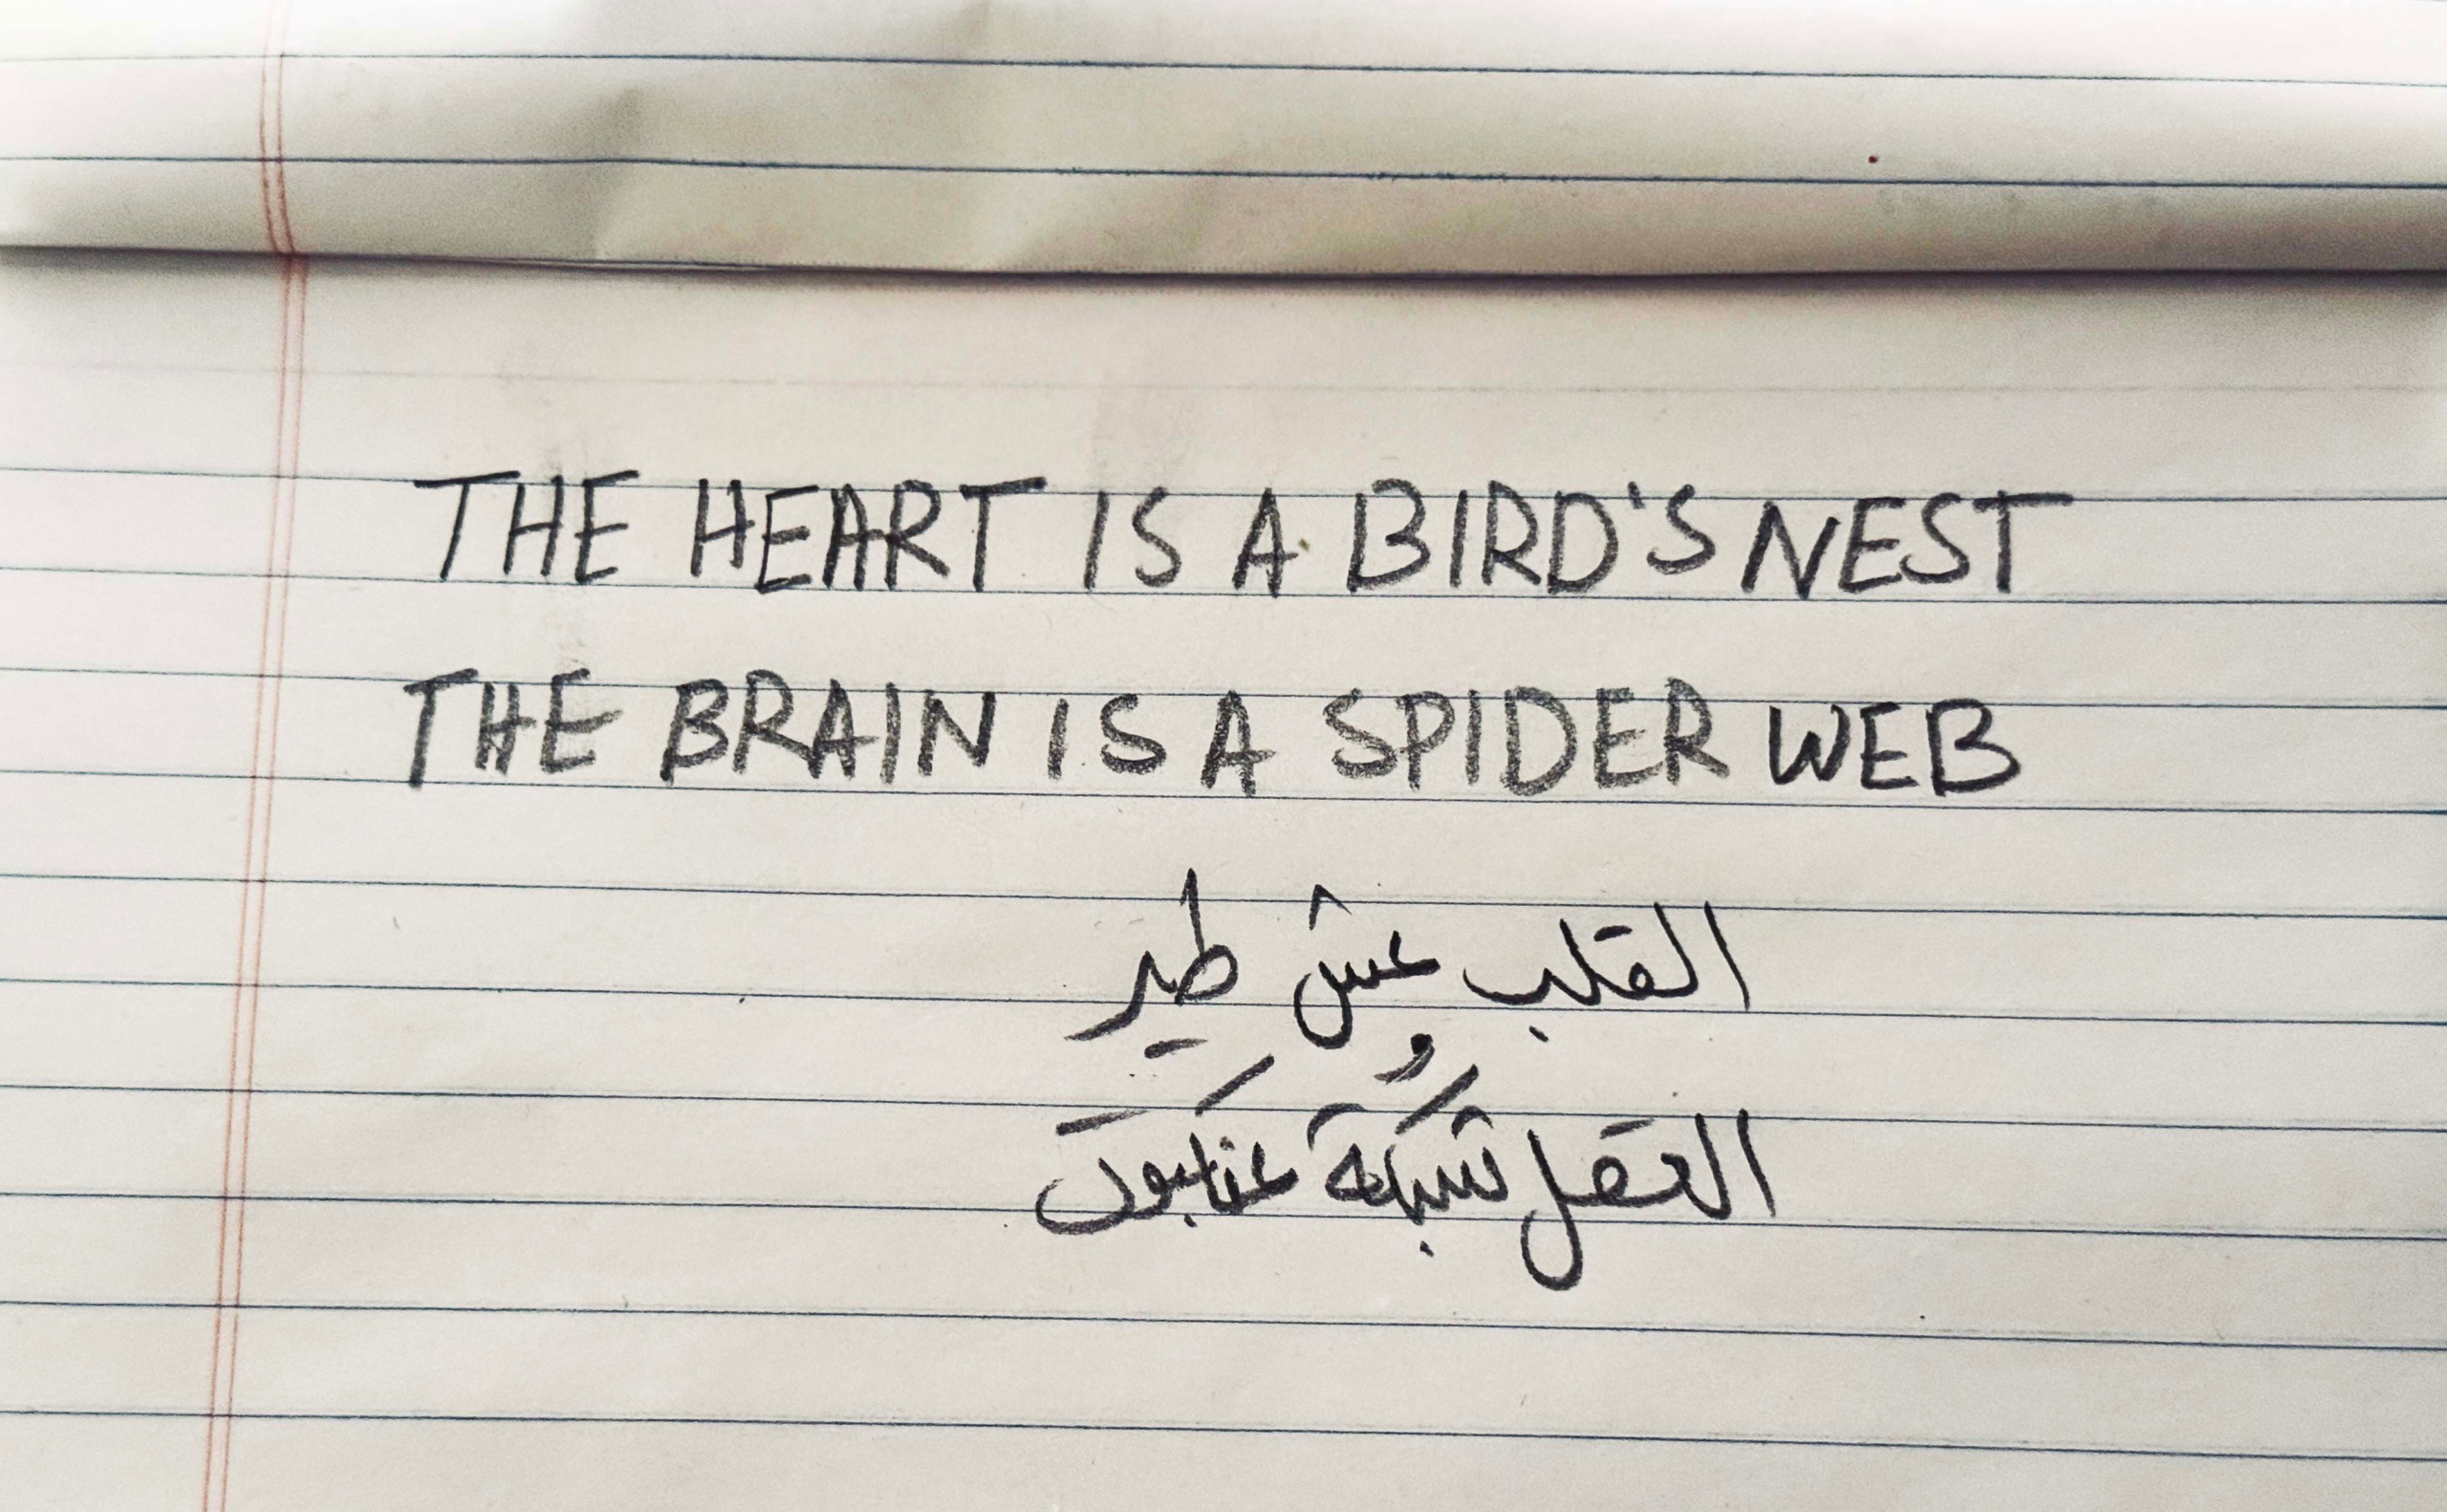 THE HEART IS A BIRD'S NEST
THE BRAIN IS A SPIDER WEB
القلب عش طير
العقل شبكةُ عنكبوت